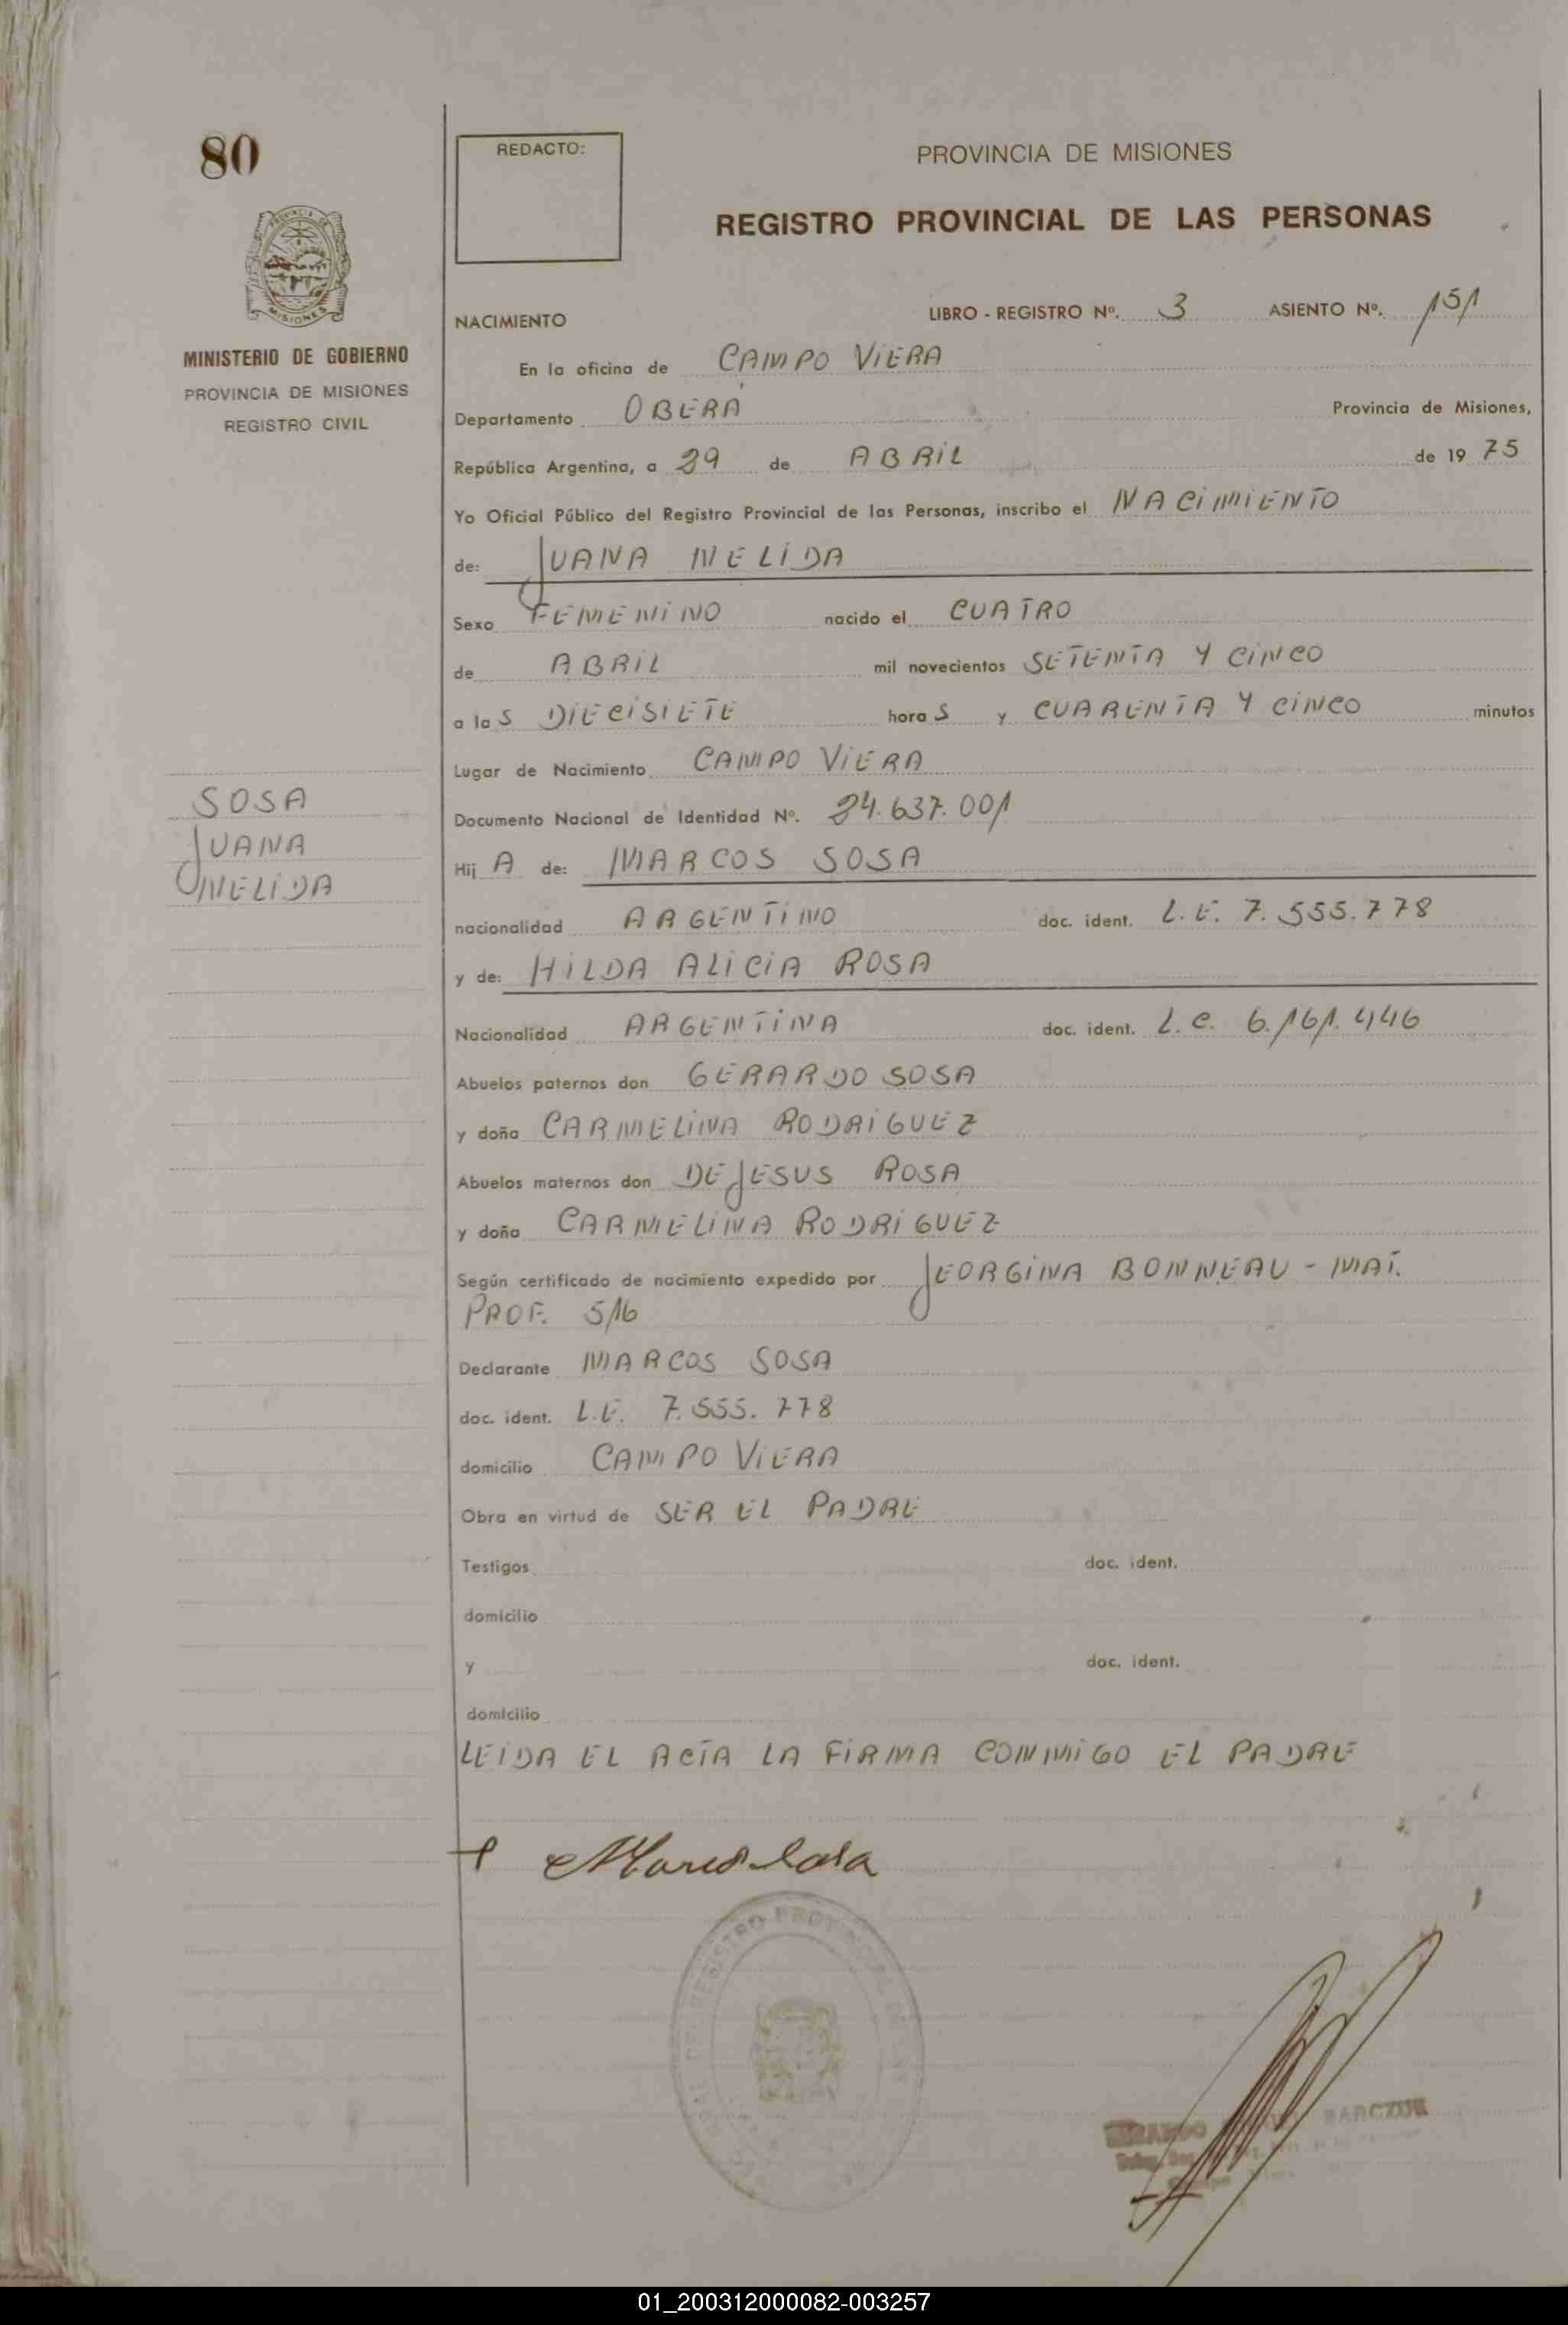 80
REDACTO:
PROVINCIA DE MISIONES
REGISTRO PROVINCIAL DE LAS PERSONAS
MISIONES
MINISTERIO DE GOBIERNO
PROVINCIA DE MISIONES
REGISTRO CIVIL
NACIMIENTO LIBRO - REGISTRO Nº. 3 ASIENTO Nº. 151
En la oficina de CAMPO VIERA
Departamento OBERÁ Provincia de Misiones,
República Argentina, a 29 de ABRIL de 19 75
Yo Oficial Público del Registro Provincial de las Personas, inscribo el NACIMIENTO
de: JUANA NELIDA
Sexo FEMENINO nacido el CUATRO
de ABRIL mil novecientos SETENTA Y CINCO
a las DIECISIETE horas y CUARENTA Y CINCO minutos
Lugar de Nacimiento CAMPO VIERA
SOSA
JUANA
NELIDA
Documento Nacional de Identidad Nº. 24.637.001
Hij A de: MARCOS SOSA
nacionalidad ARGENTINO doc. ident. L.E. 7.555.778
y de: HILDA ALICIA ROSA
Nacionalidad ARGENTINA doc. ident. L.C. 6.161.446
Abuelos paternos don GERARDO SOSA
y doña CARMELINA RODRIGUEZ
Abuelos maternos don DEJESUS ROSA
y doña CARMELINA RODRIGUEZ
Según certificado de nacimiento expedido por JEORGINA BONNEAU - MAT.
PROF. 516
Declarante MARCOS SOSA
doc. ident. L.E. 7.555.778
domicilio CAMPO VIERA
Obra en virtud de SER EL PADRE
Testigos doc. ident.
domicilio
y doc. ident.
domicilio
LEIDA EL ACTA LA FIRMA CONMIGO EL PADRE
Marcos Sosa
REGISTRO
BARCZUK
01_200312000082-003257